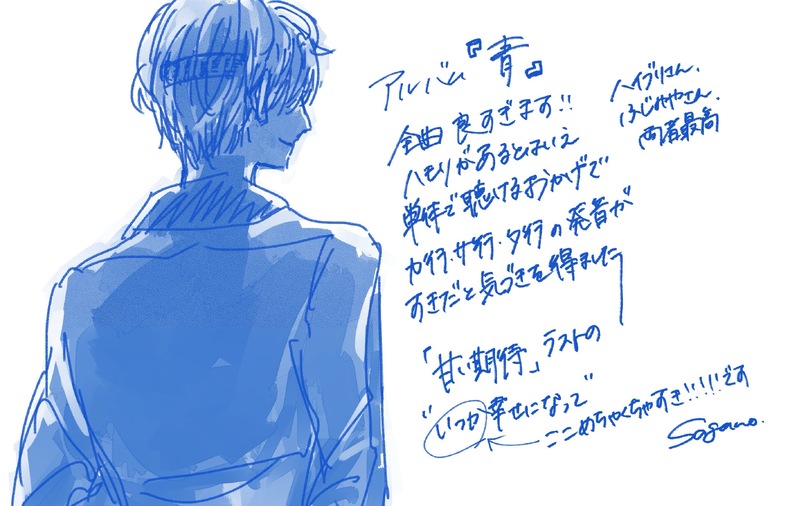 アルバム『青』
全曲良すぎます!!
ハモリがあるとはいえ
単体で聴けるおかげで
カ行・サ行・タ行の発音が
すきだと気づきを得ました
「甘い期待」ラストの
"いつか幸せになって"
ここめちゃくちゃすき!!!!です
ハイブリさん、
ふじ
両者最高
Sagano.